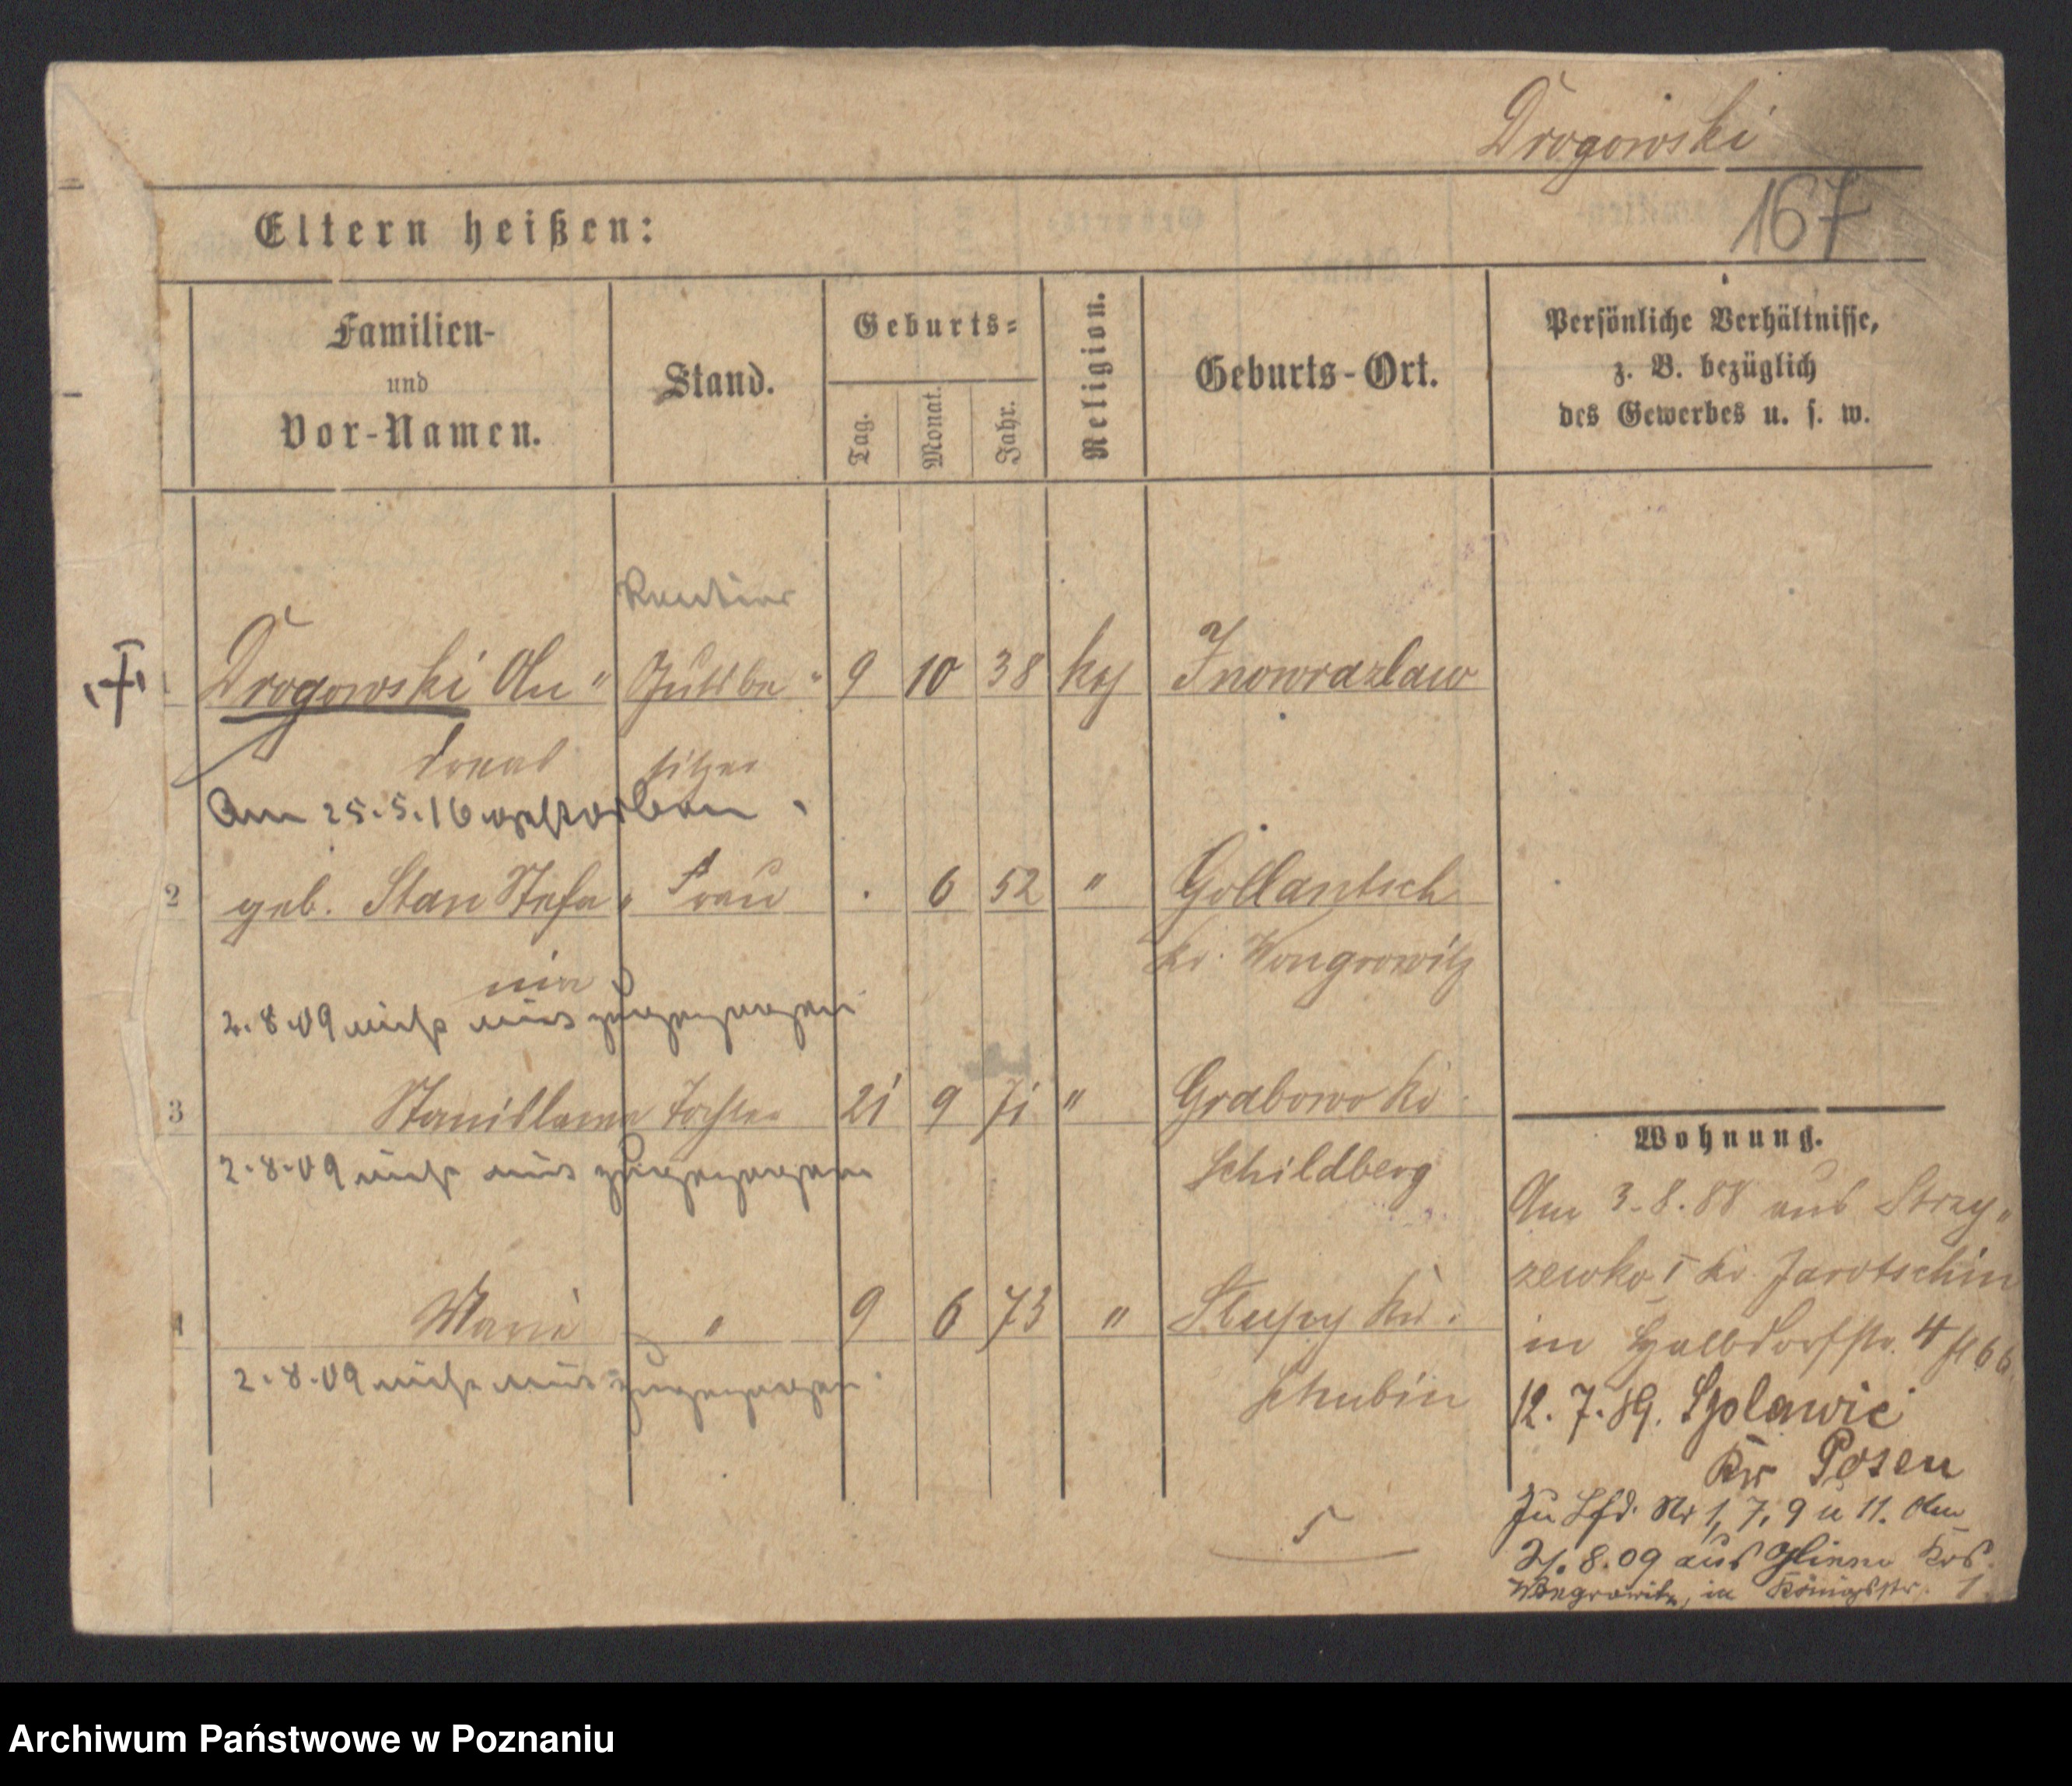 Drogowski
167
Eltern heißen:
Familien-
und
Vor-Namen.
Stand.
Geburts-
Tag.
Monat.
Jahr.
Religion.
Geburts-Ort.
Persönliche Verhältnisse,
z. B. bezüglich
des Gewerbes u. s. w.
Rentier
1 Drogowski An" Gutsbe" 9 10 38 kaj Inowrazlaw
sitzer
Am 25.5.16 gestorben.
2 geb. Stan Stefa" Frau . 6 52 " Gollantsch
nia Kr. Wongrowitz
2.8.09 nicht mit zugezogen
3 Stanislawa Tochter 21 9 71 " Grabowo Kr.
Schildberg
2.8.09 nicht mit zugezogen
4 Maria " 9 6 73 " Slupy Kr.
Schubin
2.8.09 nicht mit zugezogen.
5
Wohnung.
Am 3.8.88 aus Strzy"
zewko I Kr. Jarotschin
in Halbdorfstr. 4
12.7.89.
Kr Posen
Zu Lfd. Nr 1, 7, 9 u 11. Am
2.8.09 aus Glinno Krs.
Wongrowitz, in Königsstr. 1
Archiwum Państwowe w Poznaniu